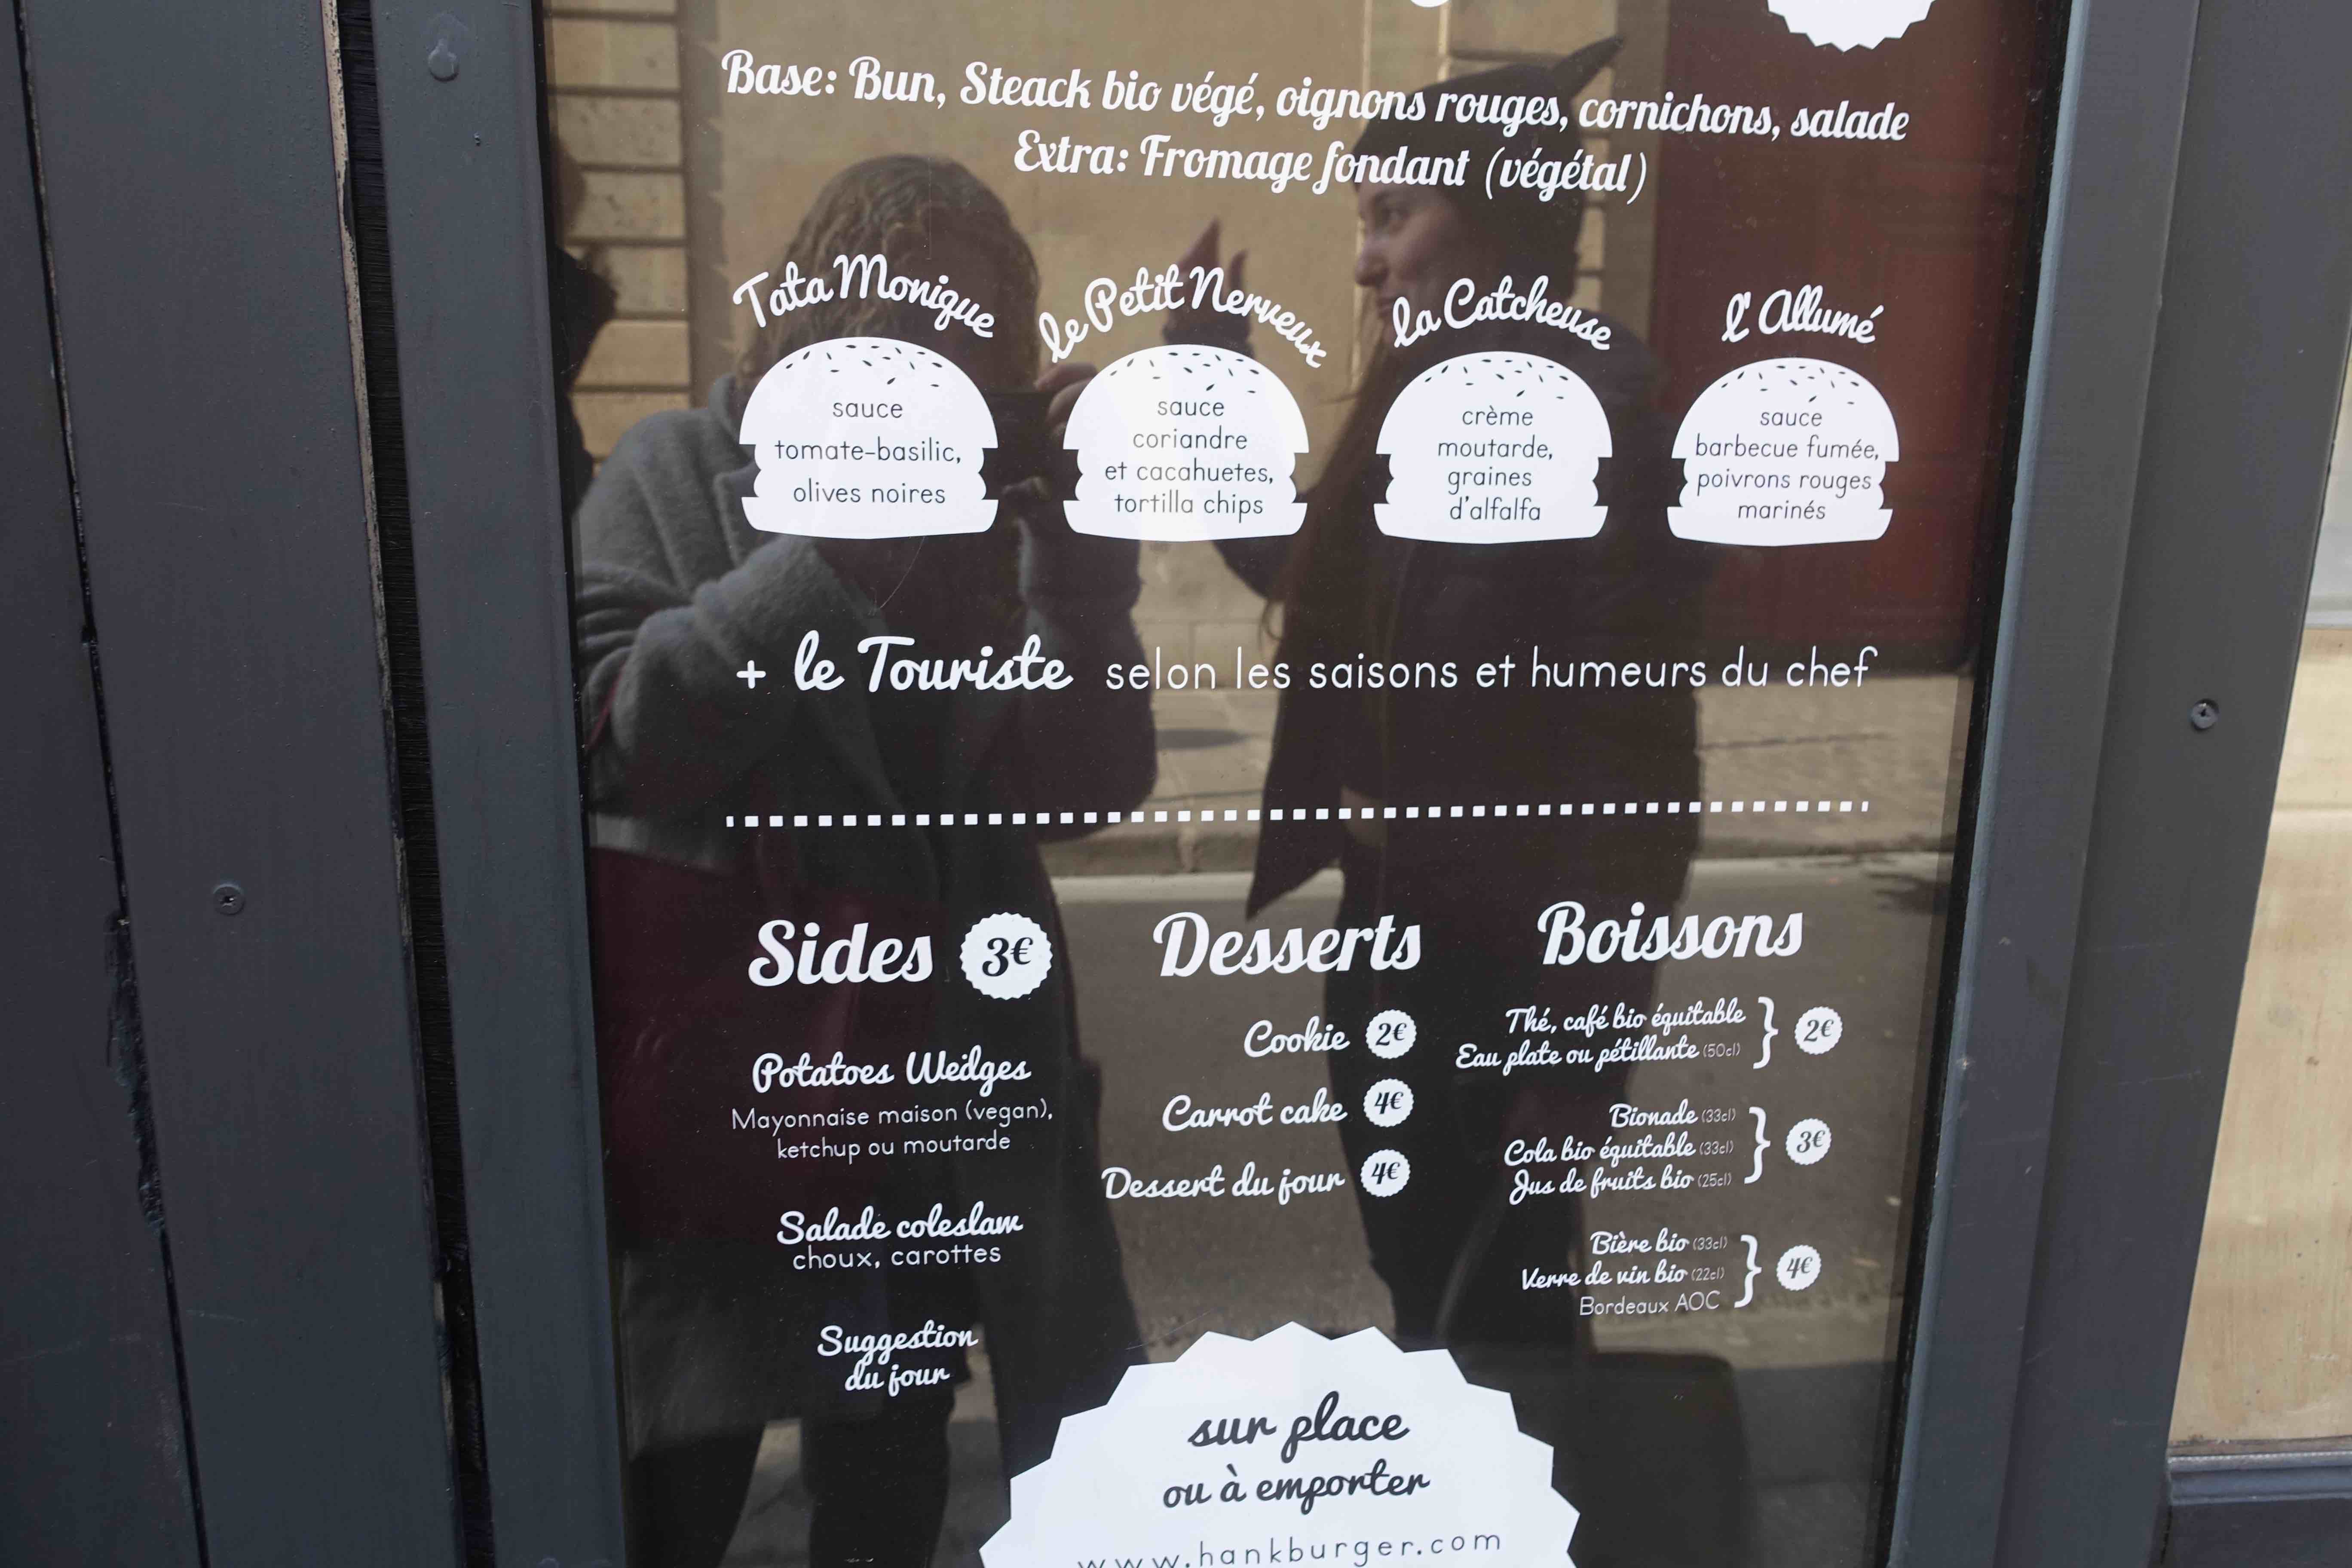 Base: Bun, Steack bio végé, oignons rouges, cornichons, salade
Extra: Fromage fondant (végétal)
Tata Monique
sauce
tomate-basilic,
olives noires
le Petit Nerveux
sauce
coriandre
et cacahuetes,
tortilla chips
la Catcheuse
crème
moutarde,
graines
d'alfalfa
l'Allumé
sauce
barbecue fumée,
poivrons rouges
marinés
+ le Touriste selon les saisons et humeurs du chef
Sides 3€
Potatoes Wedges
Mayonnaise maison (vegan),
ketchup ou moutarde
Salade coleslaw
choux, carottes
Suggestion
du jour
Desserts
Cookie 2€
Carrot cake 4€
Dessert du jour 4€
Boissons
Thé, café bio équitable
Eau plate ou pétillante (50cl)
2€
Bionade (33cl)
Cola bio équitable (33cl)
Jus de fruits bio (25cl)
3€
Bière bio (33cl)
Verre de vin bio (22cl)
Bordeaux AOC
4€
sur place
ou à emporter
www.hankburger.com